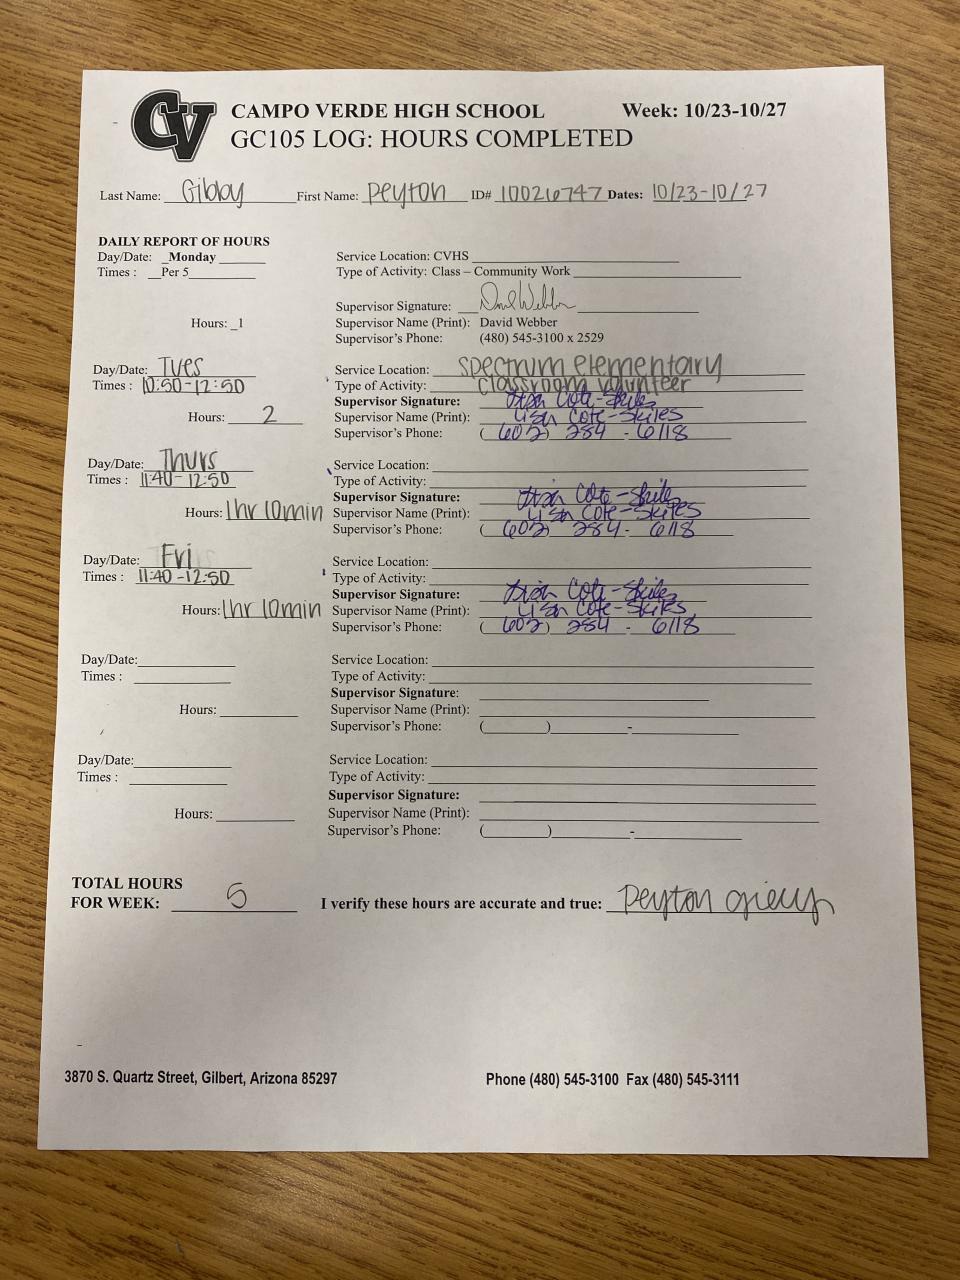 CV
CAMPO VERDE HIGH SCHOOL Week: 10/23-10/27
GC105 LOG: HOURS COMPLETED
Last Name: Gibby First Name: Peyton ID# 10026747 Dates: 10/23-10/27
DAILY REPORT OF HOURS
Day/Date: Monday Service Location: CVHS
Times : Per 5 Type of Activity: Class – Community Work
Supervisor Signature: David Webber
Hours: 1 Supervisor Name (Print): David Webber
Supervisor's Phone: (480) 545-3100 x 2529
Day/Date: Tues Service Location: Spectrum elementary
Times : 10:50-12:50 Type of Activity: Classroom volunteer
Supervisor Signature: Lisa Cote-Skiles
Hours: 2 Supervisor Name (Print): Lisa Cote-Skiles
Supervisor's Phone: (602) 284 - 6118
Day/Date: Thurs Service Location:
Times : 11:40-12:50 Type of Activity:
Supervisor Signature: Lisa Cote-Skiles
Hours: 1hr 10min Supervisor Name (Print): Lisa Cote-Skiles
Supervisor's Phone: (602) 284 - 6118
Day/Date: Fri Service Location:
Times : 11:40-12:50 Type of Activity:
Supervisor Signature: Lisa Cote-Skiles
Hours: 1hr 10min Supervisor Name (Print): Lisa Cote-Skiles
Supervisor's Phone: (602) 284 - 6118
Day/Date: Service Location:
Times : Type of Activity:
Supervisor Signature:
Hours: Supervisor Name (Print):
Supervisor's Phone: ( ) -
Day/Date: Service Location:
Times : Type of Activity:
Supervisor Signature:
Hours: Supervisor Name (Print):
Supervisor's Phone: ( ) -
TOTAL HOURS
FOR WEEK: 5 I verify these hours are accurate and true: Peyton
3870 S. Quartz Street, Gilbert, Arizona 85297 Phone (480) 545-3100 Fax (480) 545-3111